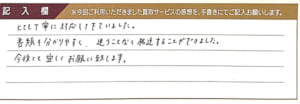 記入欄 ※今回ご利用いただきました買取サービスの感想を、手書きにてご記入お願いします。
とても丁寧に対応して下さいました。
書類も分かりやすく、迷うことなく発送することができました。
今後とも宜しくお願い致します。